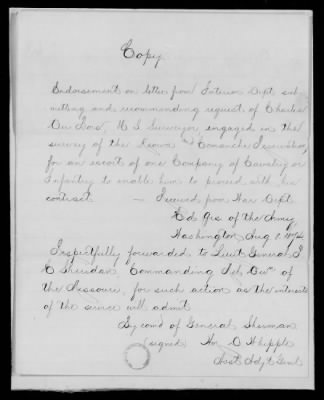 Copy
Endorsement on letter from Interior Dept. sub
mitting and recommending request of Charles
U.S Surveyor, engaged in the
survey of the Kiowa & Comanche Reservation,
for an escort of one Company of Cavalry or
Infantry to enable him to proceed with his
contract. — Received from War Dept
Hd Qrs of the Army
Washington Aug 8. 1874
Respectfully forwarded to Lieut General P.
H Sheridan, Commanding Mil. Divn of
the Missouri, for such action as the interests
of the service will admit
By comd of General Sherman
(signed) Wm D Whipple
Asst Adjt Genl